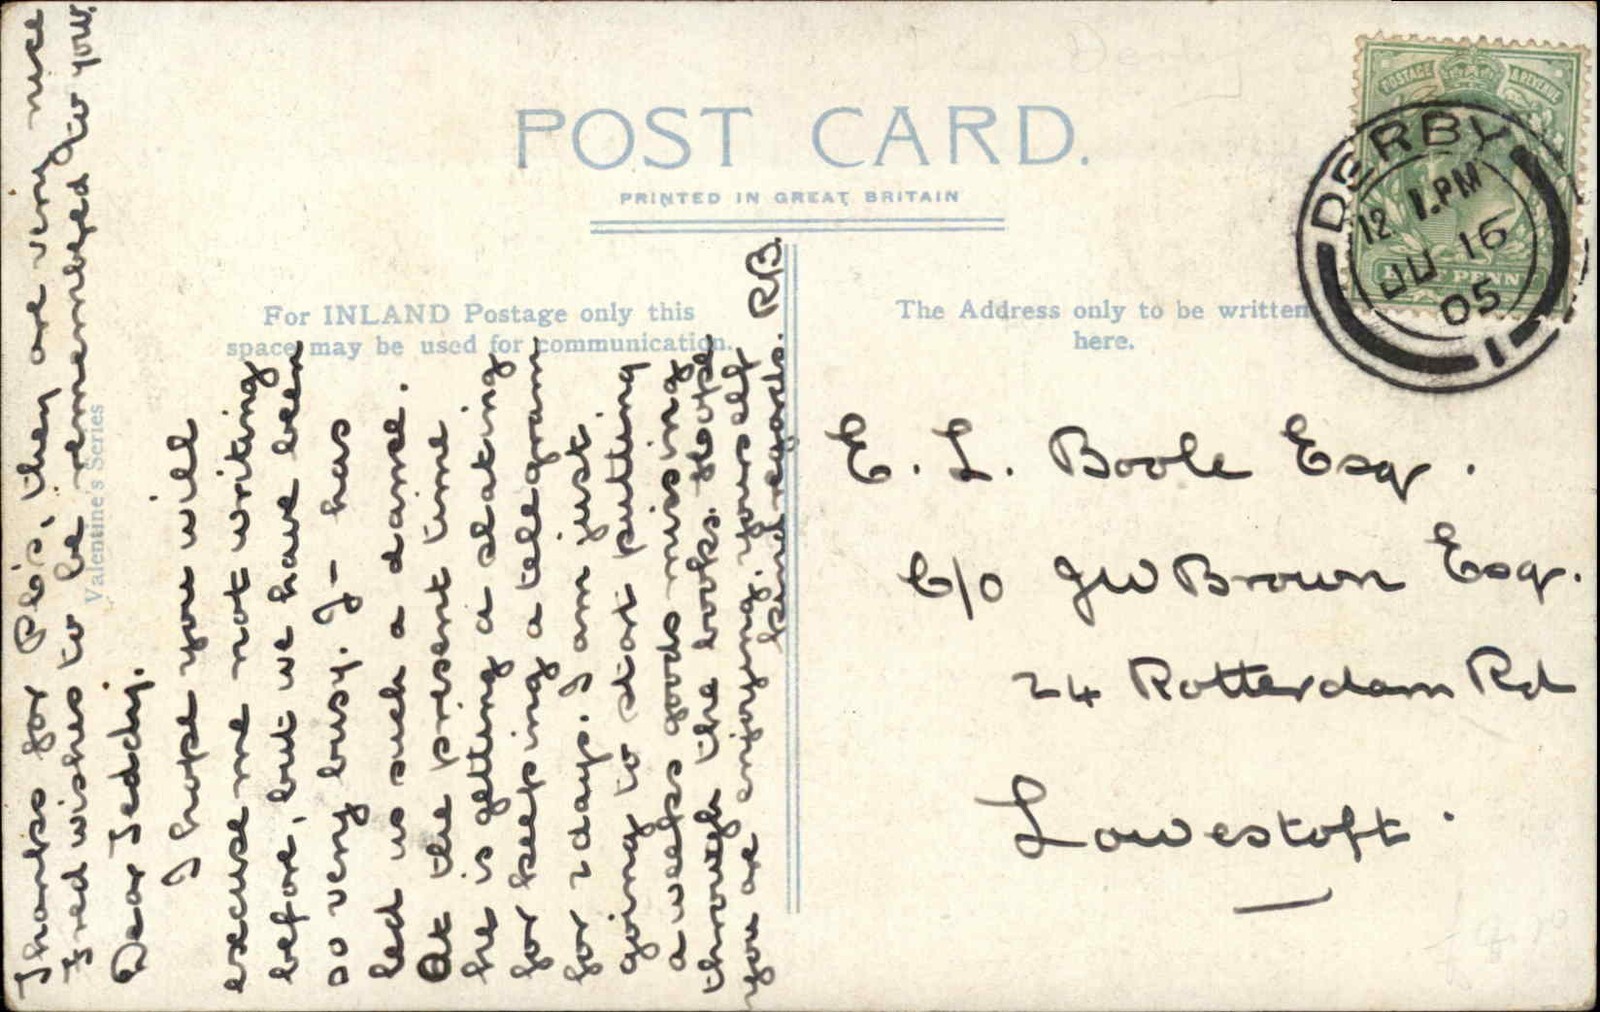 POST CARD.
PRINTED IN GREAT BRITAIN
For INLAND Postage only this
space may be used for communication.
The Address only to be written
here.
Valentine's Series
POSTAGE & REVENUE
HALF PENNY
DERBY
12 1.PM
JU 16
05
1
Thanks for P.C's, they are very nice
Fred wishes to be remembered to you.
Dear Teddy.
I hope you will
excuse me not writing
before, but we have been
so very busy. J- has
led us such a dance.
At the present time
he is getting a slating
for keeping a telegram
for 2 days. I am just
going to start putting
a weeks goods missing
through the books. Hope
you are enjoying yourself
kind regards. RB.
E. L. Boole Esq.
C/o JW Brown Esq.
24 Rotterdam Rd
Lowestoft.